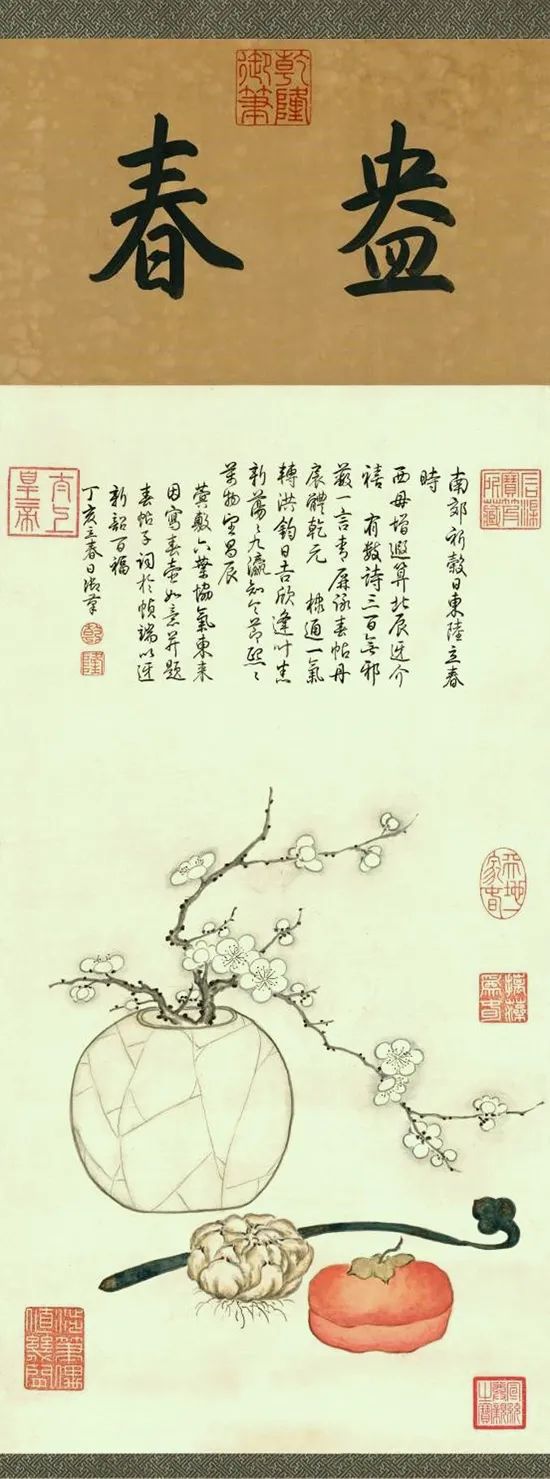 乾隆御筆
盎春
南郊祈穀日東陸立春
時
西母增遐算北辰迓介
禧 有數詩三百無邪
蔽一言青屏詠春帖丹
扆體乾元 棣通一氣
轉洪鈞日吉欣逢叶吉
新蕩九瀛知令節熙〻
萬物宜昌辰
蓂敷六葉協氣東來
因寫春壺如意并題
春帖子詞於幀端以迓
新韶百福
丁亥立春日御筆
乾
隆
太上皇帝
天地一家春